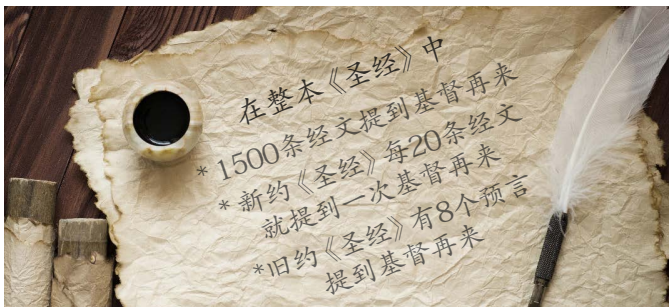 在整本《圣经》中
* 1500条经文提到基督再来
* 新约《圣经》每20条经文
就提到一次基督再来
*旧约《圣经》有8个预言
提到基督再来